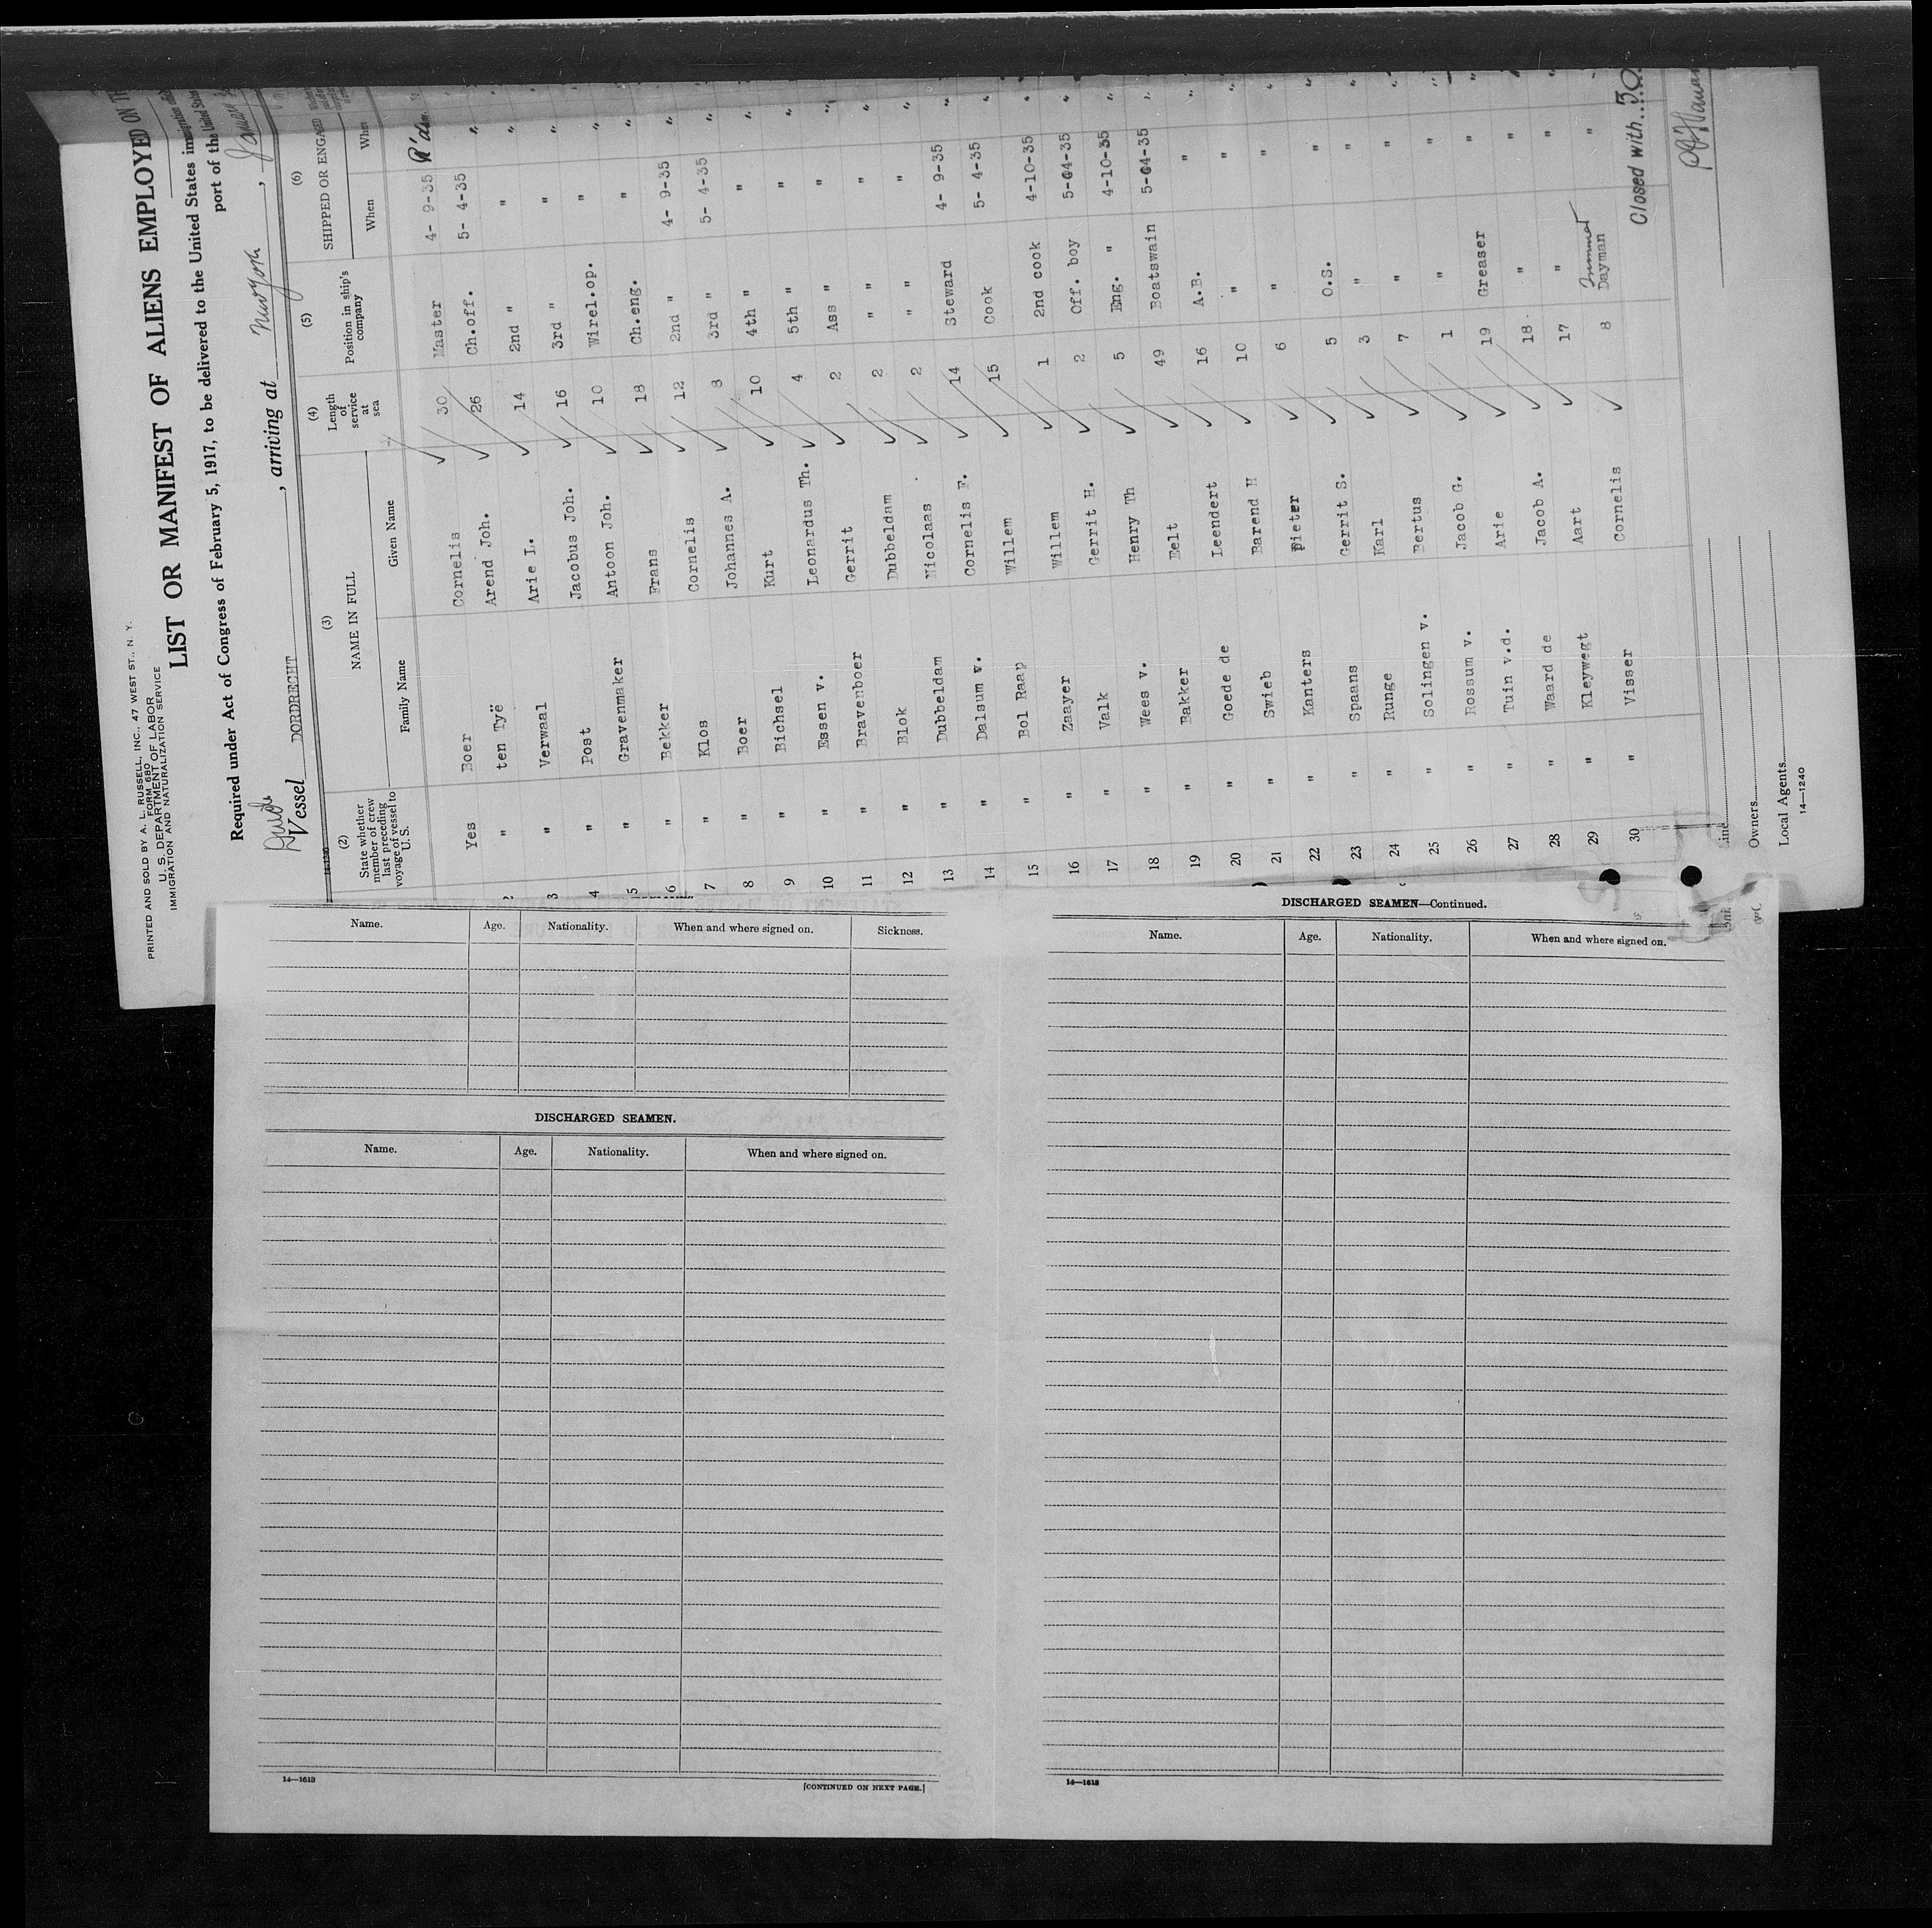 PRINTED AND SOLD BY A. L. RUSSELL, INC., 47 WEST ST., N. Y.
FORM 680
U. S. DEPARTMENT OF LABOR
IMMIGRATION AND NATURALIZATION SERVICE
LIST OR MANIFEST OF ALIENS EMPLOYED ON
Required under Act of Congress of February 5, 1917, to be delivered to the United States immigration
port of the United States
Vessel DORDRECHT, arriving at Newyork,
(2) (3) (4) (5) (6)
State whether member of crew last preceding voyage of vessel to U. S. NAME IN FULL Length of service at sea Position in ship's company SHIPPED OR ENGAGED
Family Name Given Name When
Yes Boer Cornelis 30 Master 4- 9-35 R'dam
2 " ten Tyë Arend Joh. 26 Ch.off. 5- 4-35 "
3 " Verwaal Arie L. 14 2nd " " "
4 " Post Jacobus Joh. 16 3rd " " "
5 " Gravenmaker Anton Joh. 10 Wirel.op. " "
6 " Bekker Frans 18 Ch.eng. " "
7 " Klos Cornelis 12 2nd " 4- 9-35 "
8 " Boer Johannes A. 8 3rd " 5- 4-35 "
9 " Bichsel Kurt 10 4th " " "
10 " Essen v. Leonardus Th. 4 5th " " "
11 " Bravenboer Gerrit 2 Ass " " "
12 " Blok Dubbeldam 2 " " " "
13 " Dubbeldam Nicolaas 2 " " " "
14 " Dalsum v. Cornelis F. 14 Steward 4- 9-35 "
15 " Bol Raap Willem 15 Cook 5- 4-35 "
16 " Zaayer Willem 1 2nd cook 4-10-35 "
17 " Valk Gerrit H. 2 Off. boy 5-04-35 "
18 " Wees v. Henry Th 5 Eng. " 4-10-35 "
19 " Bakker Eelt 49 Boatswain 5-04-35 "
20 " Goede de Leendert 16 A.B. " "
21 " Swieb Barend H 10 " " "
22 " Kanters Pieter 6 " " "
23 " Spaans Gerrit S. 5 O.S. " "
24 " Runge Karl 3 " " "
25 " Solingen v. Bertus 7 " " "
26 " Rossum v. Jacob G. 1 " " "
27 " Tuin v.d. Arie 19 Greaser " "
28 " Waard de Jacob A. 18 " " "
29 " Kleywegt Aart 17 " " "
30 " Visser Cornelis 8 Dayman "
Closed with 30
Owners
Local Agents
14—1240
Name. Age. Nationality. When and where signed on. Sickness.
DISCHARGED SEAMEN.
Name. Age. Nationality. When and where signed on.
14—1613 [CONTINUED ON NEXT PAGE.]
DISCHARGED SEAMEN—Continued.
Name. Age. Nationality. When and where signed on.
14—1613